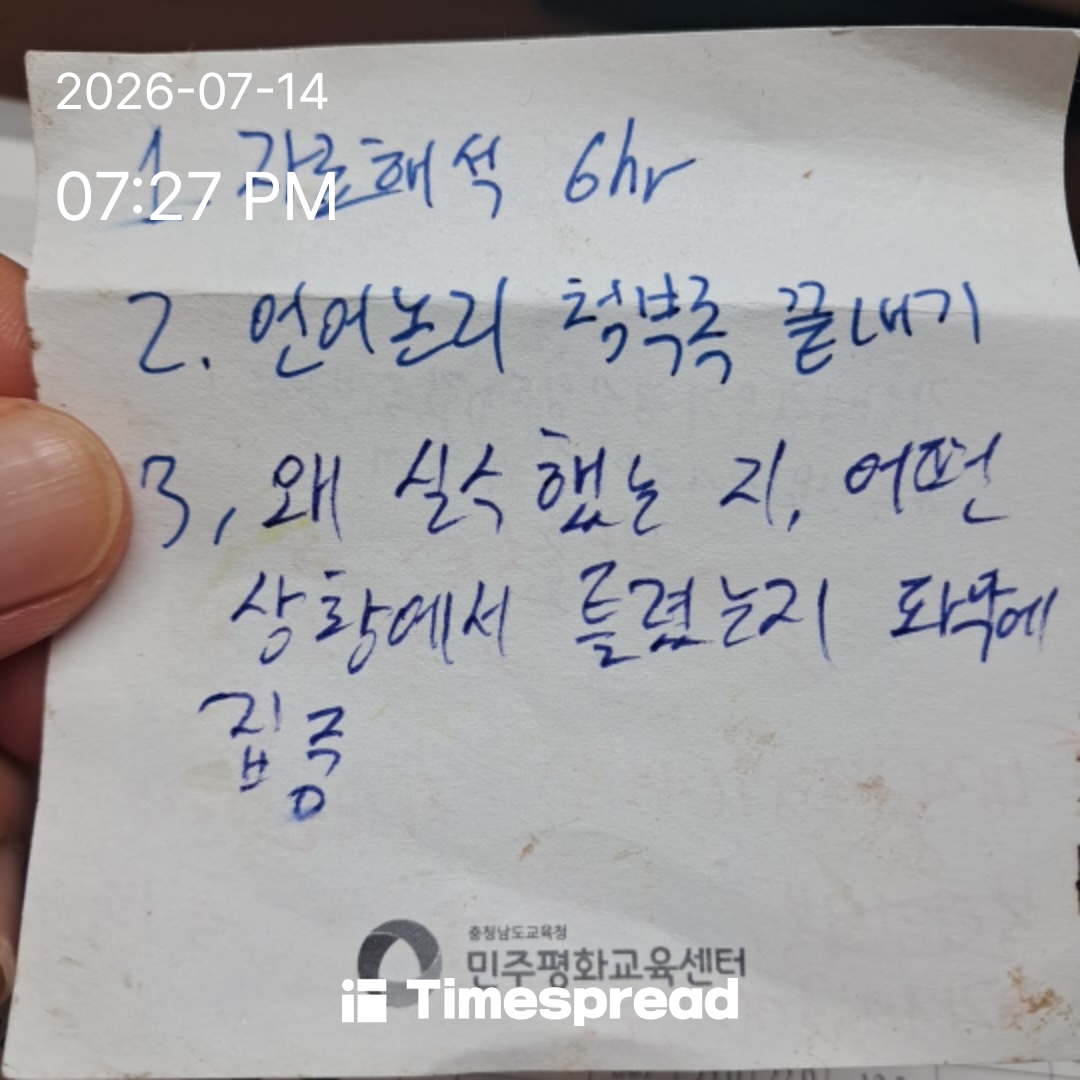 2026-07-14
1. 자료해석 6hr
07:27 PM
2. 언어논리 척부족 끝내기
3, 왜 실수했는 지, 어떤
상황에서 틀렸는지 파악에
집중
충청남도교육청
민주평화교육센터
Timespread